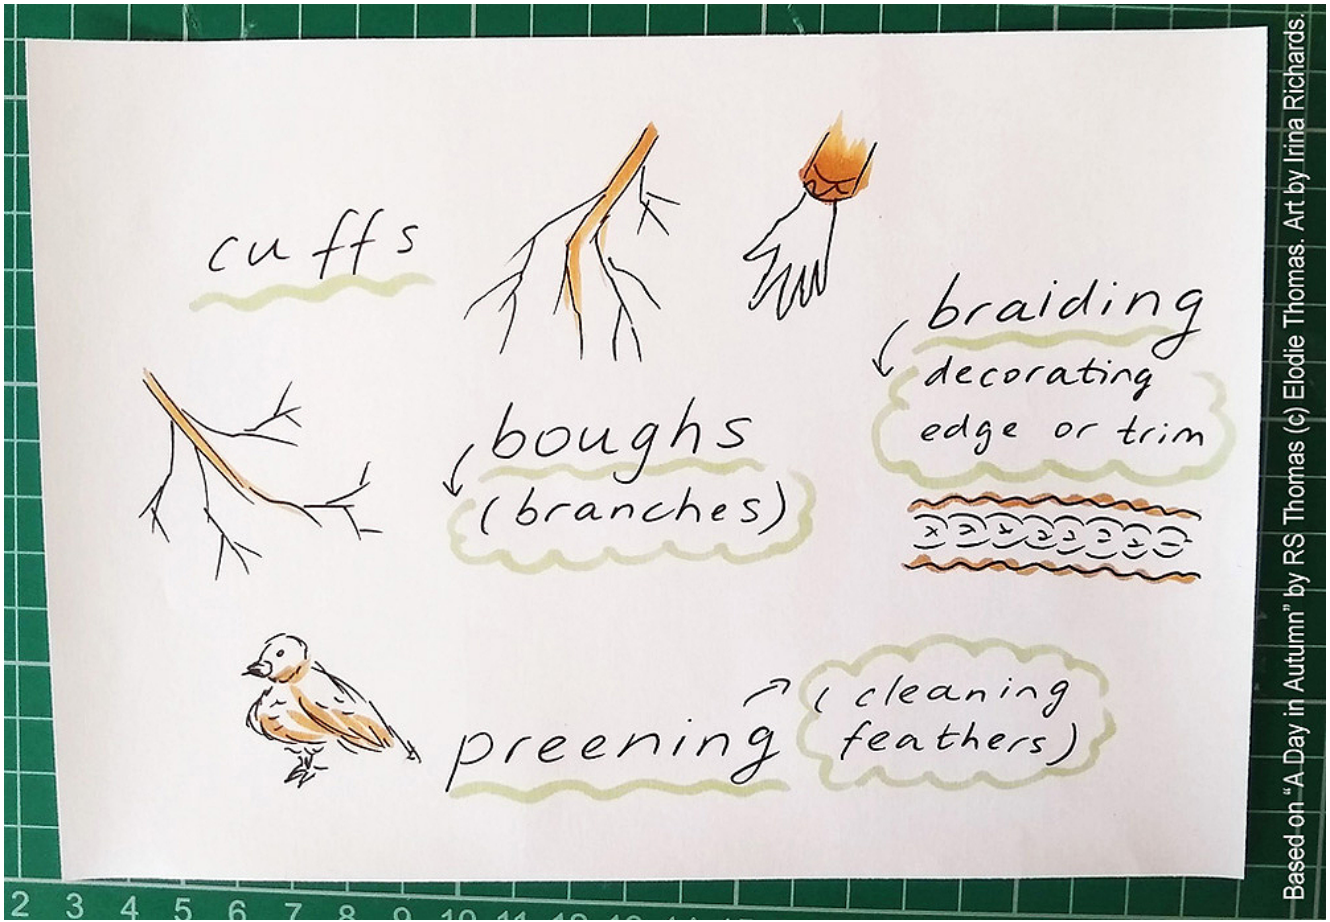 cuffs
braiding
decorating
edge or trim
boughs
(branches)
preening
(cleaning
feathers)
Based on “A Day in Autumn” by RS Thomas (c) Elodie Thomas. Art by Irina Richards.
2 3 4 5 6 7 8 9 10 11 12 13 14 15